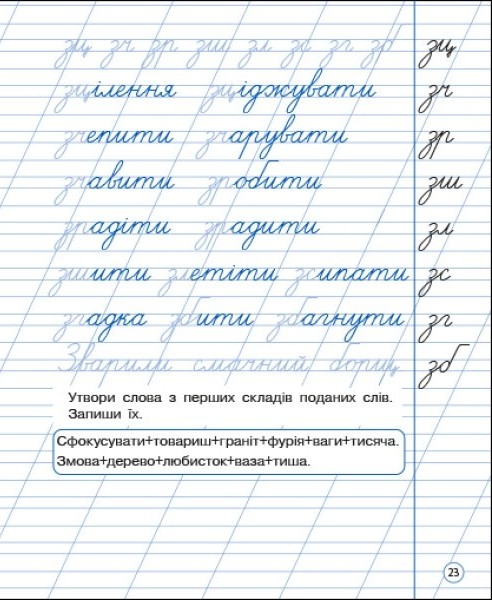 зц зч зр зш зл зс зг зб зц
зцілення зціджувати зч
зчепити зчарувати зр
зчавити зробити зш
зрадіти зрадити зл
зшити злетіти зсипати зс
згадка збити збагнути зг
Зварили смачний борщ зб
Утвори слова з перших складів поданих слів.
Запиши їх.
Сфокусувати+товариш+граніт+фурія+ваги+тисяча.
Змова+дерево+любисток+ваза+тиша.
23